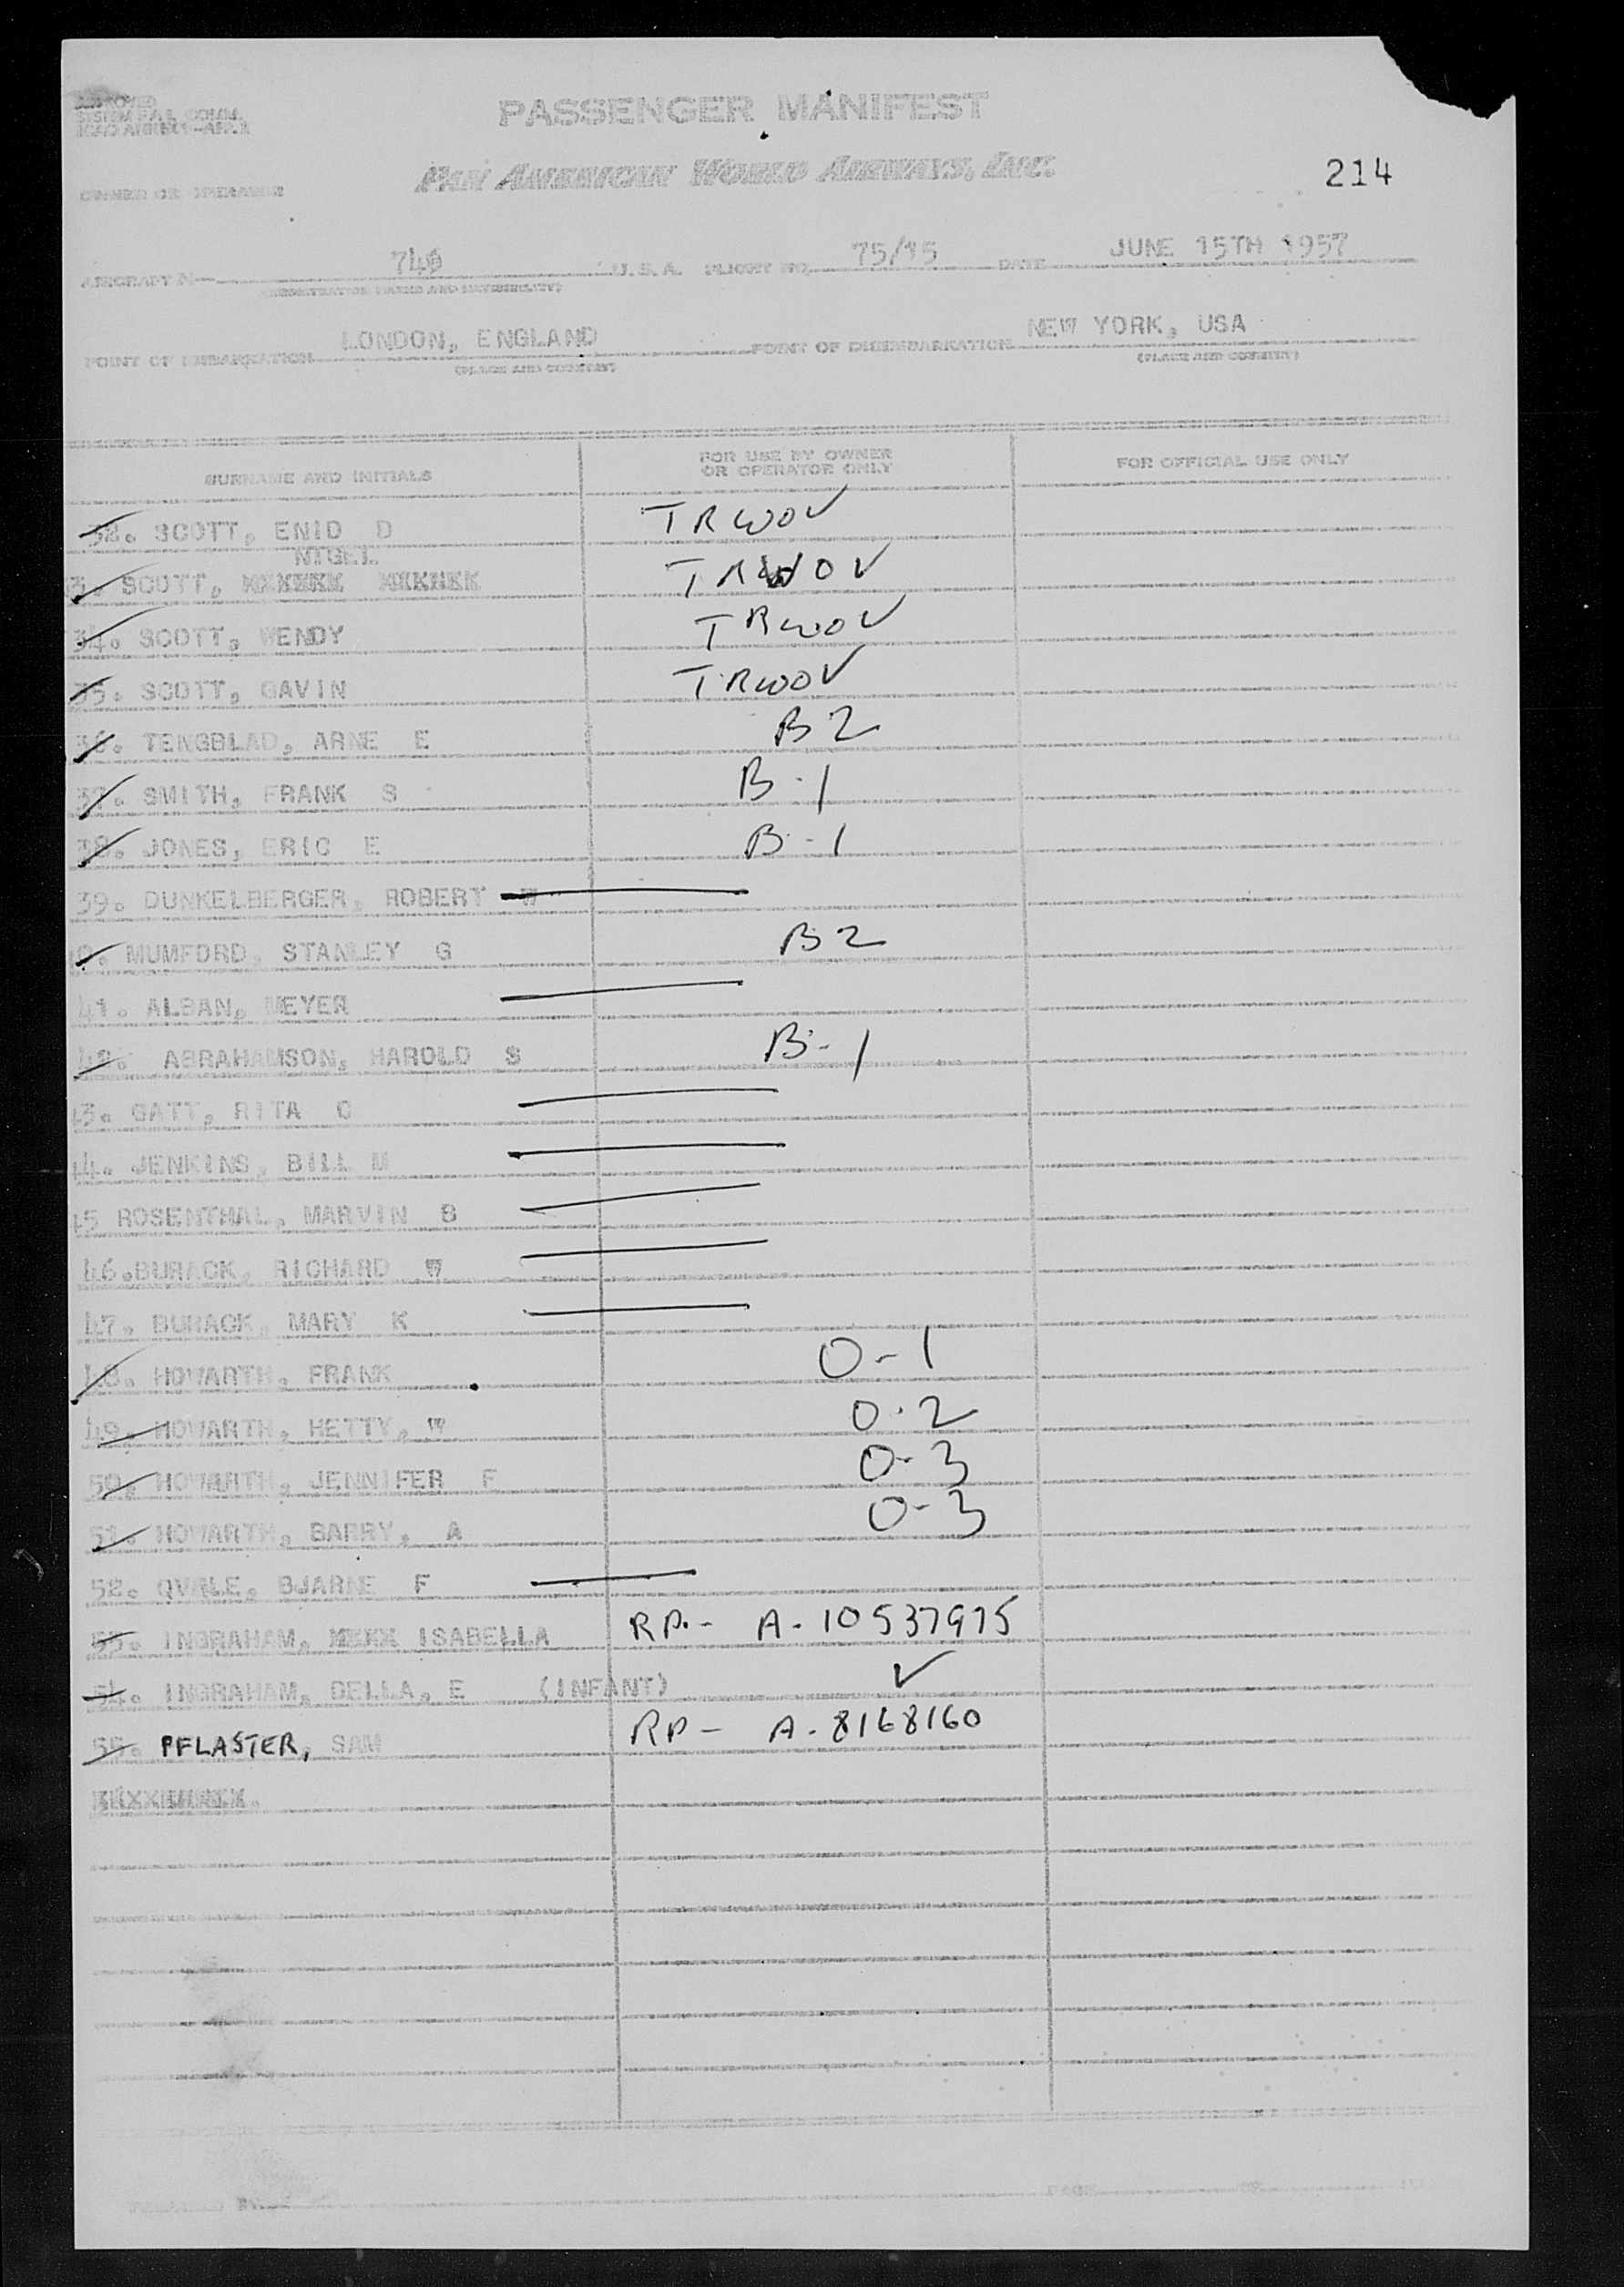 PASSENGER MANIFEST
PAN AMERICAN WORLD AIRWAYS, INC.
214
OWNER OR OPERATOR
AIRCRAFT N— 740 U.S.A. FLIGHT NO. 75/15 DATE JUNE 15TH 1957
(REGISTRATION MARKS AND NATIONALITY)
POINT OF EMBARKATION LONDON, ENGLAND POINT OF DISEMBARKATION NEW YORK, USA
(PLACE AND COUNTRY) (PLACE AND COUNTRY)
SURNAME AND INITIALS FOR USE BY OWNER OR OPERATOR ONLY FOR OFFICIAL USE ONLY
32. SCOTT, ENID D TRWOV
NIGEL
3. SCOTT, TRWOV
34. SCOTT, WENDY TRWOV
35. SCOTT, GAVIN TRWOV
36. TENGBLAD, ARNE E B2
37. SMITH, FRANK S B-1
38. JONES, ERIC E B-1
39. DUNKELBERGER, ROBERT W
0. MUMFORD, STANLEY G B2
41. ALBAN, MEYER
42. ABRAHAMSON, HAROLD S B-1
43. GATT, RITA C
44. JENKINS, BILL M
45 ROSENTHAL, MARVIN B
46. BURACK, RICHARD W
47. BURACK, MARY K
48. HOWARTH, FRANK O-1
49. HOWARTH, HETTY, W O-2
50. HOWARTH, JENNIFER F O-3
51. HOWARTH, BARRY, A O-3
52. QVALE, BJARNE F
53. INGRAHAM, ISABELLA RP.- A-10537975
54. INGRAHAM, DELLA, E (INFANT) ✓
55. PFLASTER, SAM RP- A-8168160